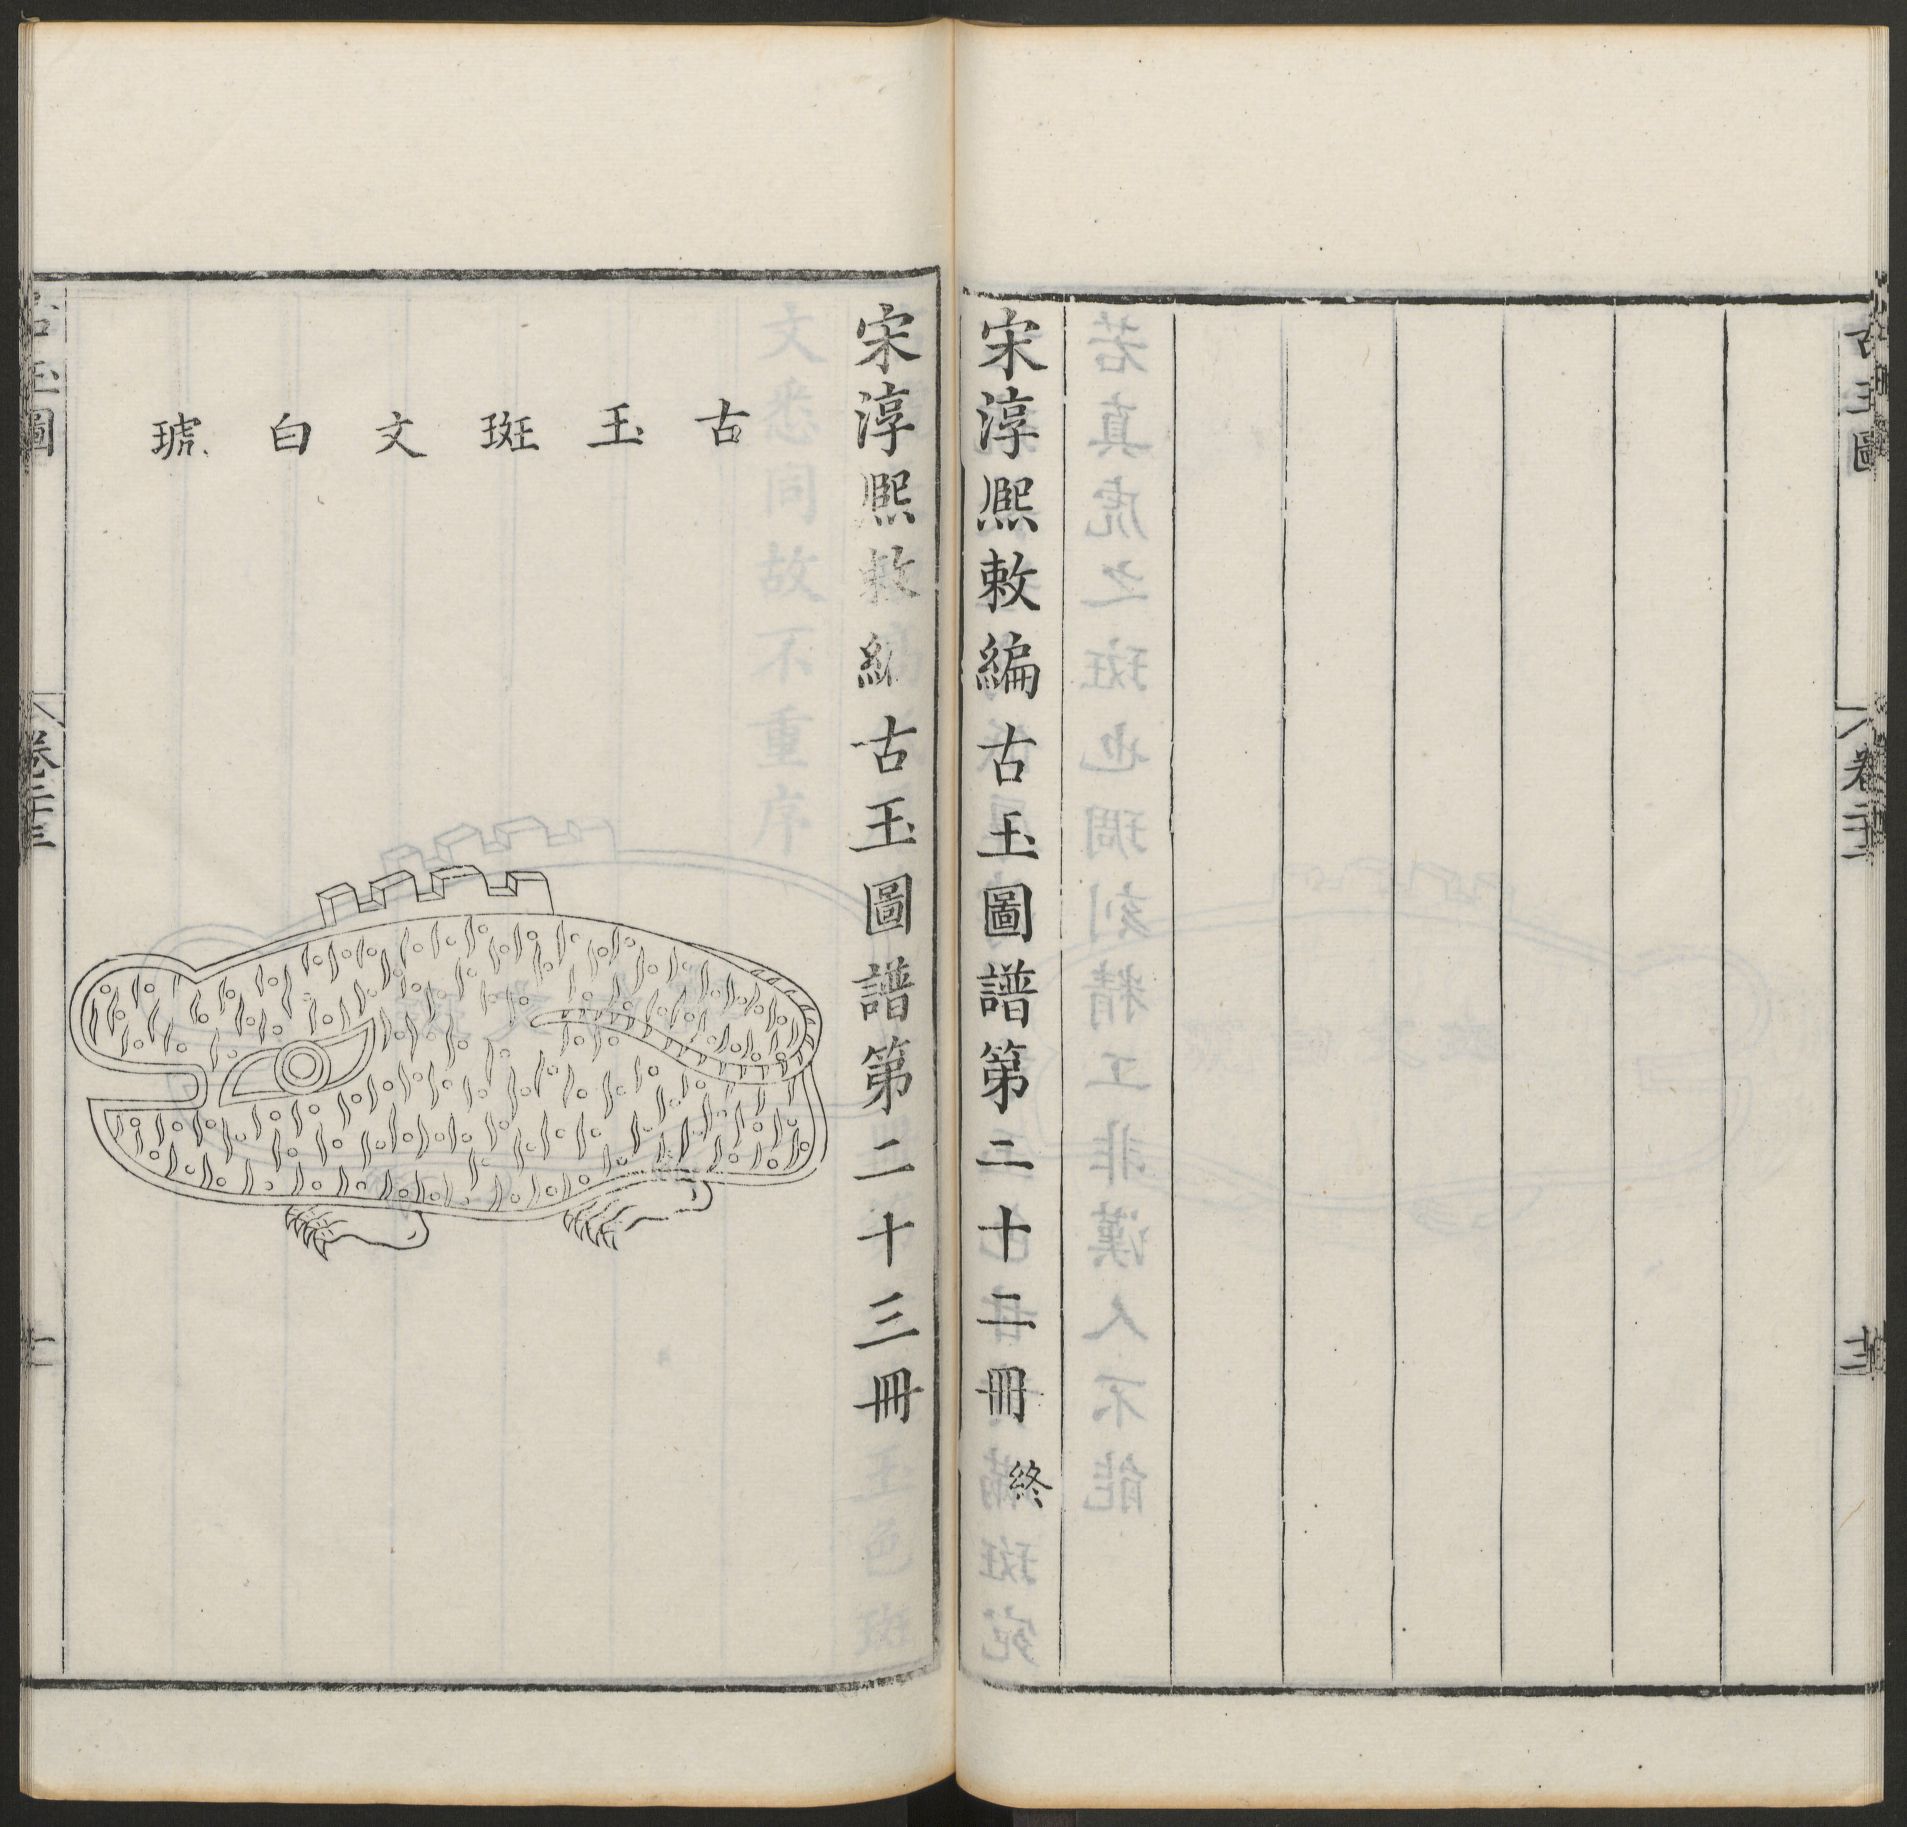 宋淳熙敕編古玉圖譜第二十二冊 終
宋淳熙敕編古玉圖譜第二十三冊
古玉斑文白琥
古玉圖
卷二十三